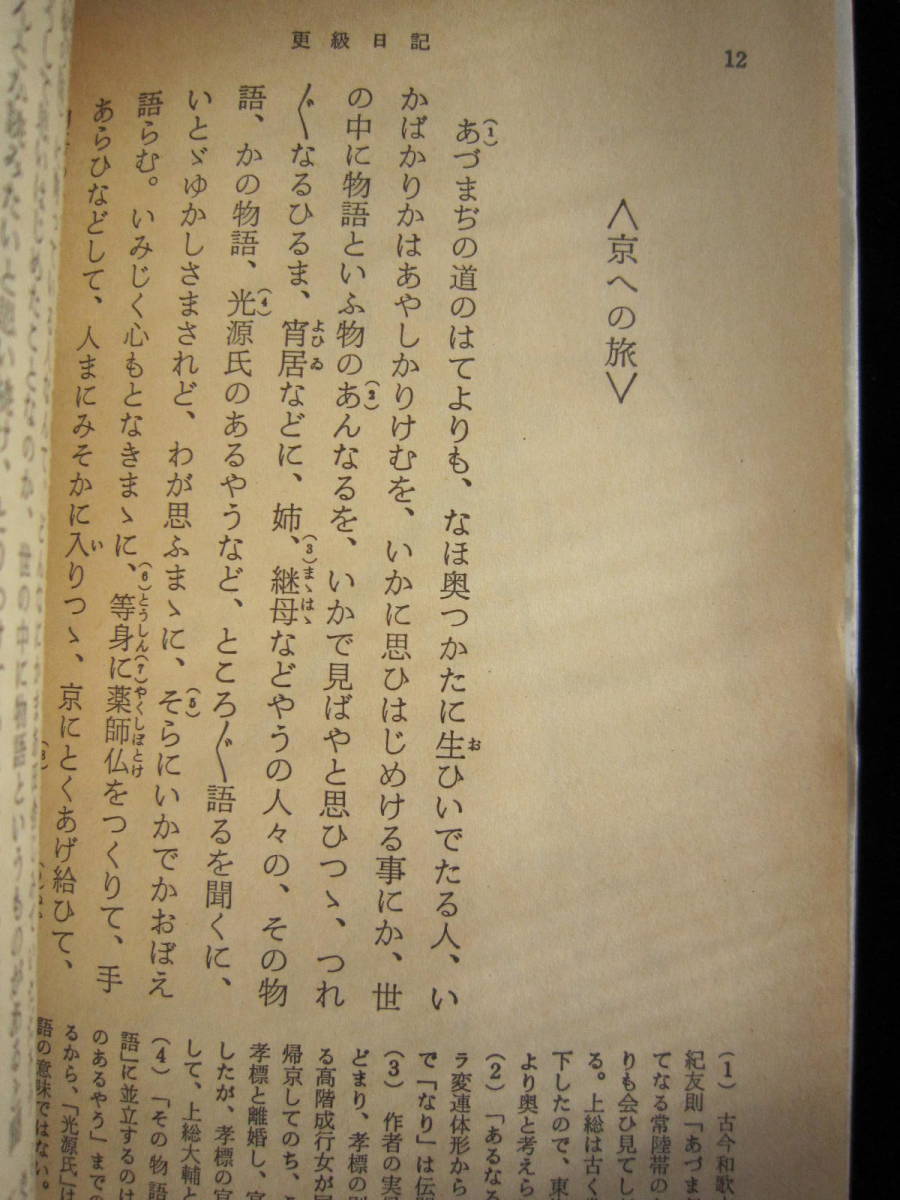 更級日記
12
〈京への旅〉
あづまぢの道のはてよりも、なほ奥つかたに生ひいでたる人、い
かばかりかはあやしかりけむを、いかに思ひはじめける事にか、世
の中に物語といふ物のあんなるを、いかで見ばやと思ひつゝ、つれ
〴〵なるひるま、宵居などに、姉、継母などやうの人々の、その物
語、かの物語、光源氏のあるやうなど、ところ〴〵語るを聞くに、
いとゞゆかしさまされど、わが思ふまゝに、そらにいかでかおぼえ
語らむ。いみじく心もとなきまゝに、等身に薬師仏をつくりて、手
あらひなどして、人まにみそかに入りつゝ、京にとくあげ給ひて、
(1) 古今和歌
紀友則「あづま
てなる常陸帯の
りも会ひ見てし
る。上総は古く
下したので、東
より奥と考えら
(2) 「あるなる
ラ変連体形から
で「なり」は伝
(3) 作者の実
どまり、孝標の
る高階成行女が
帰京してのち、
孝標と離婚し、
したが、孝標の官
して、上総大輔と
(4) 「その物語
語」に並立するのは
のあるやう」までの
るから、「光源氏」は
語の意味ではない。